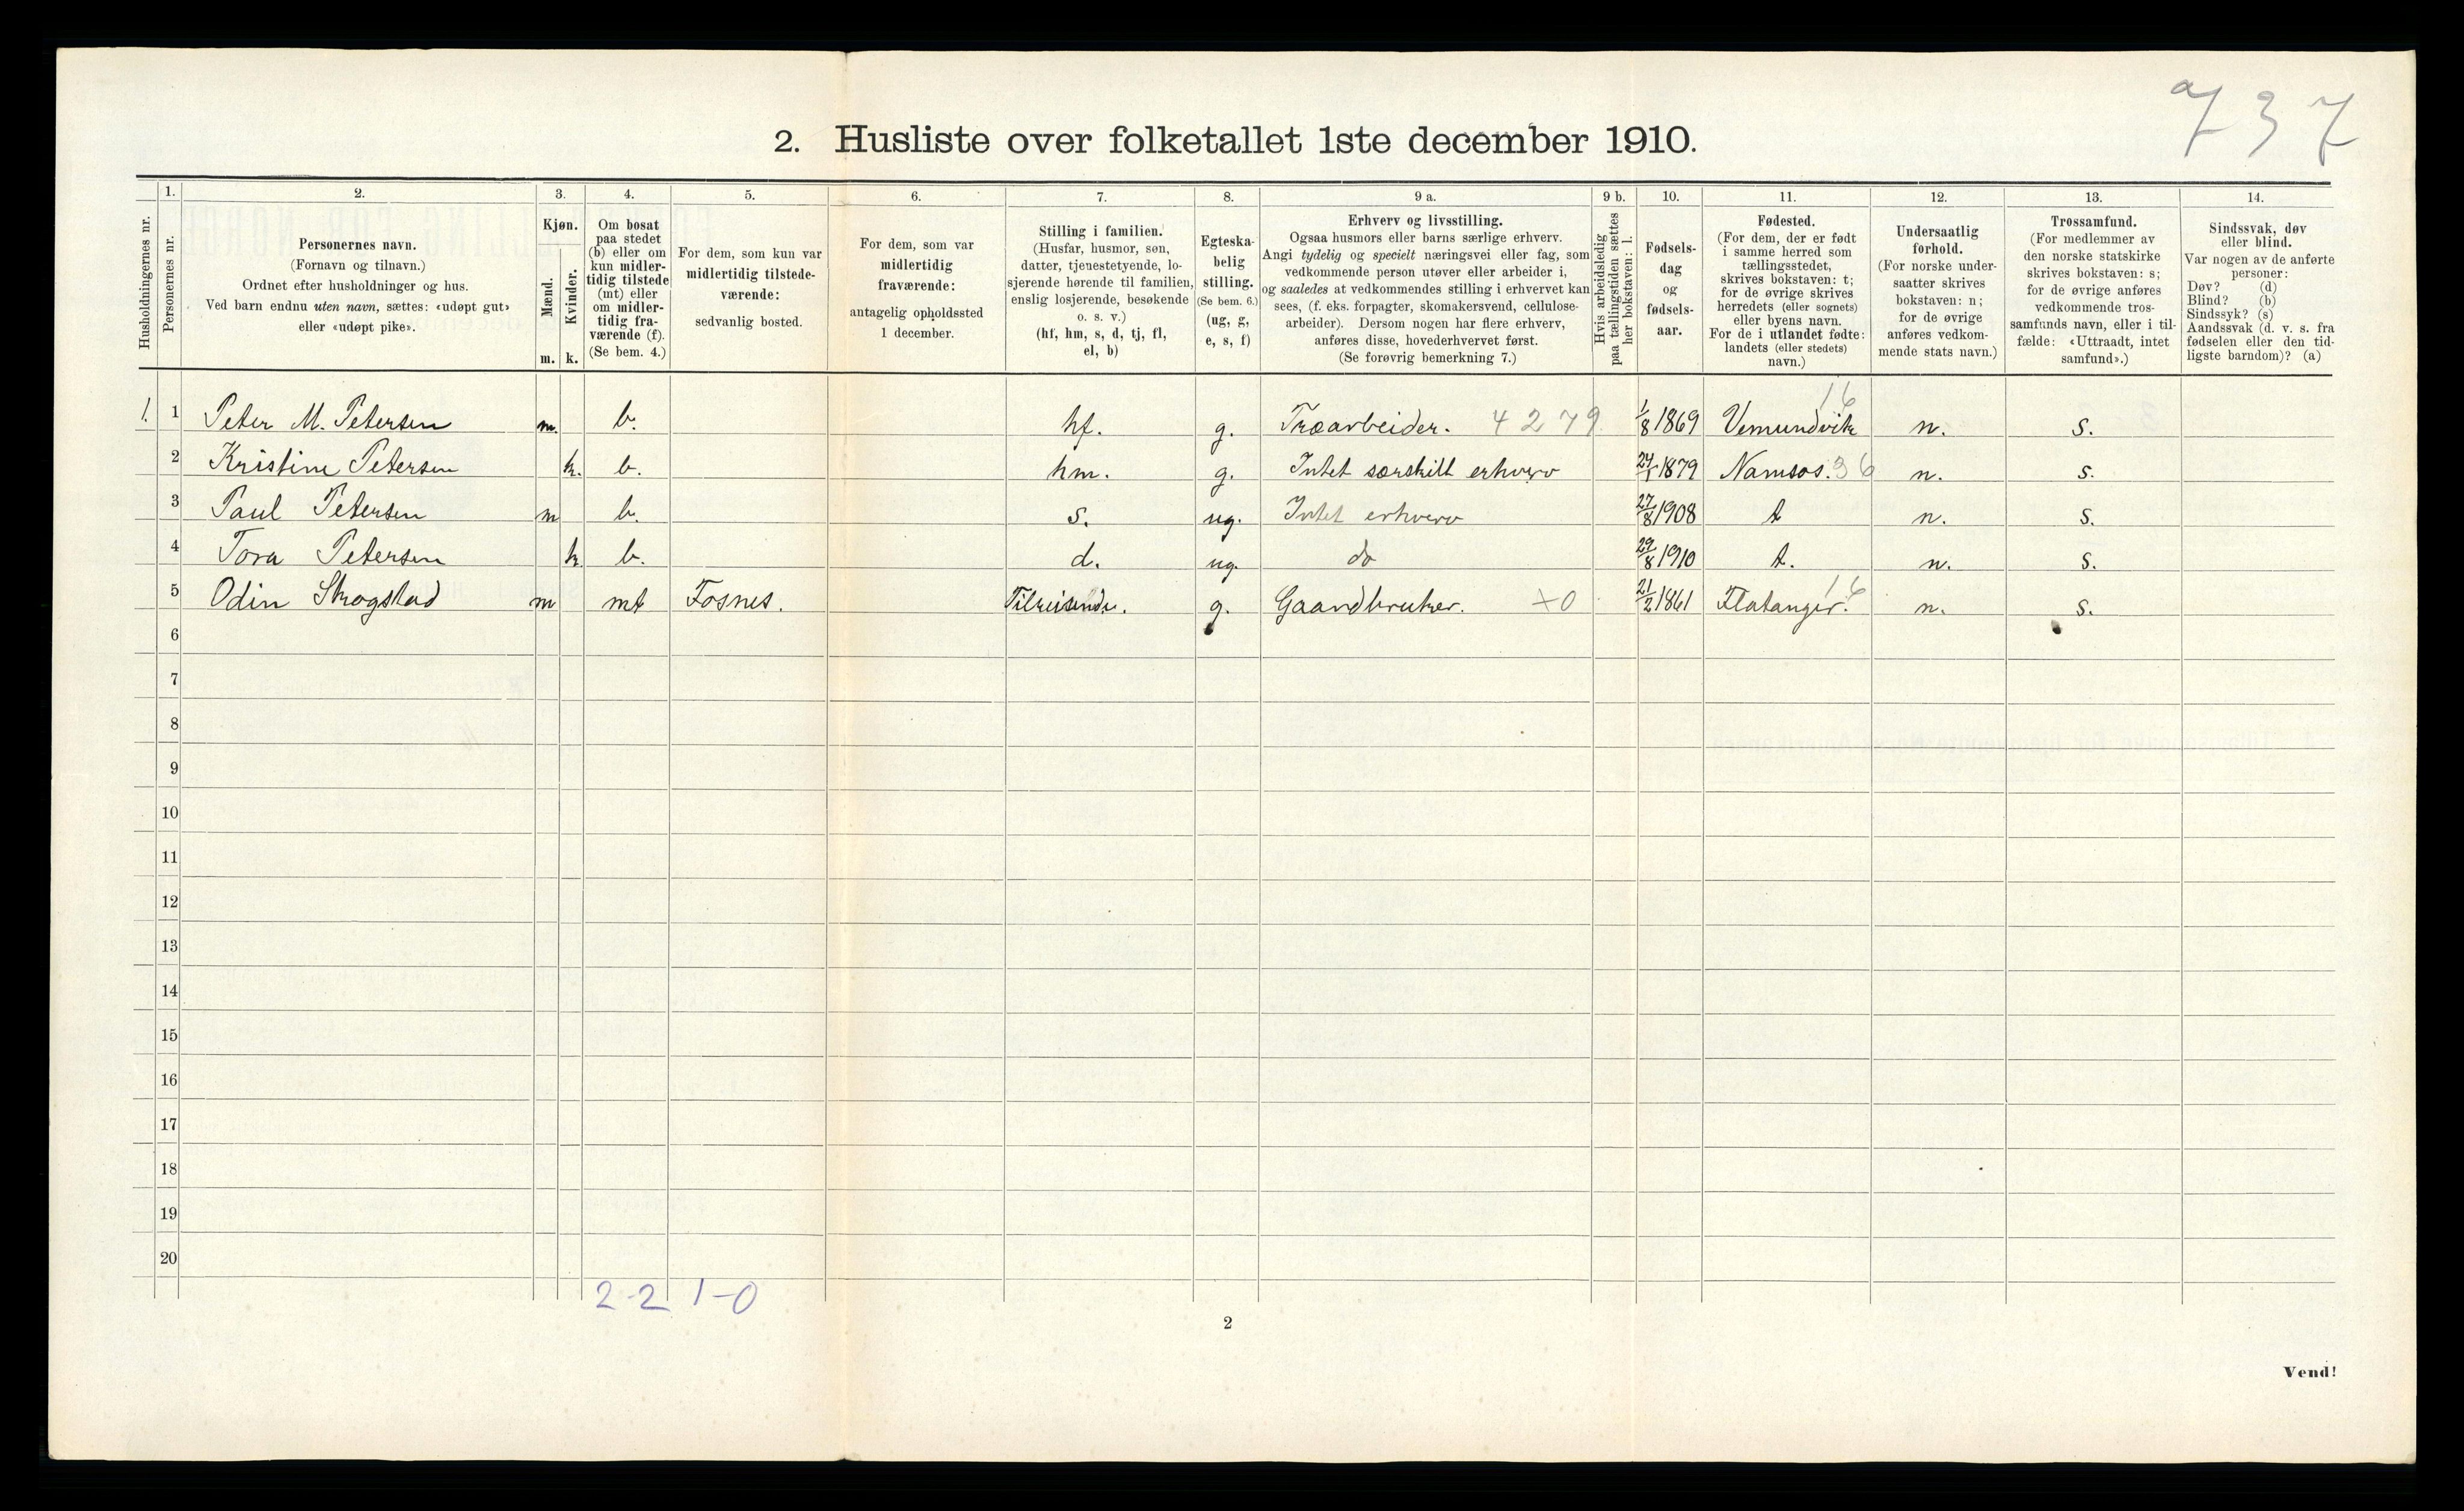 737
2. Husliste over folketallet 1ste december 1910.
Husholdningernes nr.
1.
Personernes nr.
2.
Personernes navn.
(Fornavn og tilnavn.)
Ordnet efter husholdninger og hus.
Ved barn endnu uten navn, sættes: «udøpt gut»
eller «udøpt pike».
3.
Kjøn.
Mænd.
Kvinder.
m. k.
4.
Om bosat
paa stedet
(b) eller om
kun midler-
tidig tilstede
(mt) eller
om midler-
tidig fra-
værende (f).
(Se bem. 4.)
5.
For dem, som kun var
midlertidig tilstede-
værende:
sedvanlig bosted.
6.
For dem, som var
midlertidig
fraværende:
antagelig opholdssted
1 december.
7.
Stilling i familien.
(Husfar, husmor, søn,
datter, tjenestetyende, lo-
sjerende hørende til familien,
enslig losjerende, besøkende
o. s. v.)
(hf, hm, s, d, tj, fl,
el, b)
8.
Egteska-
belig
stilling.
(Se bem. 6.)
(ug, g,
e, s, f)
9 a.
Erhverv og livsstilling.
Ogsaa husmors eller barns særlige erhverv.
Angi tydelig og specielt næringsvei eller fag, som
vedkommende person utøver eller arbeider i,
og saaledes at vedkommendes stilling i erhvervet kan
sees, (f. eks. forpagter, skomakersvend, cellulose-
arbeider). Dersom nogen har flere erhverv,
anføres disse, hovederhvervet først.
(Se forøvrig bemerkning 7.)
9 b.
Hvis arbeidsledig
paa tællingstiden sættes
her bokstaven: l.
10.
Fødsels-
dag
og
fødsels-
aar.
11.
Fødested.
(For dem, der er født
i samme herred som
tællingsstedet,
skrives bokstaven: t;
for de øvrige skrives
herredets (eller sognets)
eller byens navn.
For de i utlandet fødte:
landets (eller stedets)
navn.)
12.
Undersaatlig
forhold.
(For norske under-
saatter skrives
bokstaven: n;
for de øvrige
anføres vedkom-
mende stats navn.)
13.
Trossamfund.
(For medlemmer av
den norske statskirke
skrives bokstaven: s;
for de øvrige anføres
vedkommende tros-
samfunds navn, eller i til-
fælde: «Uttraadt, intet
samfund».)
14.
Sindssvak, døv
eller blind.
Var nogen av de anførte
personer:
Døv? (d)
Blind? (b)
Sindssyk? (s)
Aandssvak (d. v. s. fra
fødselen eller den tid-
ligste barndom)? (a)
1. 1 Peter M. Petersen m. b. hf. g. Træarbeider. 4279 1/8 1869 Vemundvik 16 n. s.
2 Kristine Petersen k. b. hm. g. Intet særskilt erhverv 24/1 1879 Namsos. 36 n. s.
3 Paul Petersen m b. s. ug. Intet erhverv 27/8 1908 t n. s.
4 Tora Petersen k. b. d. ug. do 29/8 1910 t. n. s.
5 Odin Skogstad m mt Fosnes. Tilreisende. g. Gaardbruker. +0 21/2 1861 Flatanger. 16 n. s.
6
7
8
9
10
11
12
13
14
15
16
17
18
19
20
2-2 1-0
2
Vend!